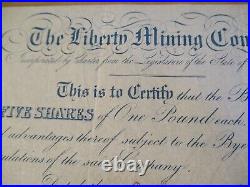 The Liberty Mining Com
Incorporated by Charter from the Legislature of the State of
This is to Certify that the B
FIVE SHARES of One Pound each
advantages thereof subject to the Bye
ulations of the said Company.